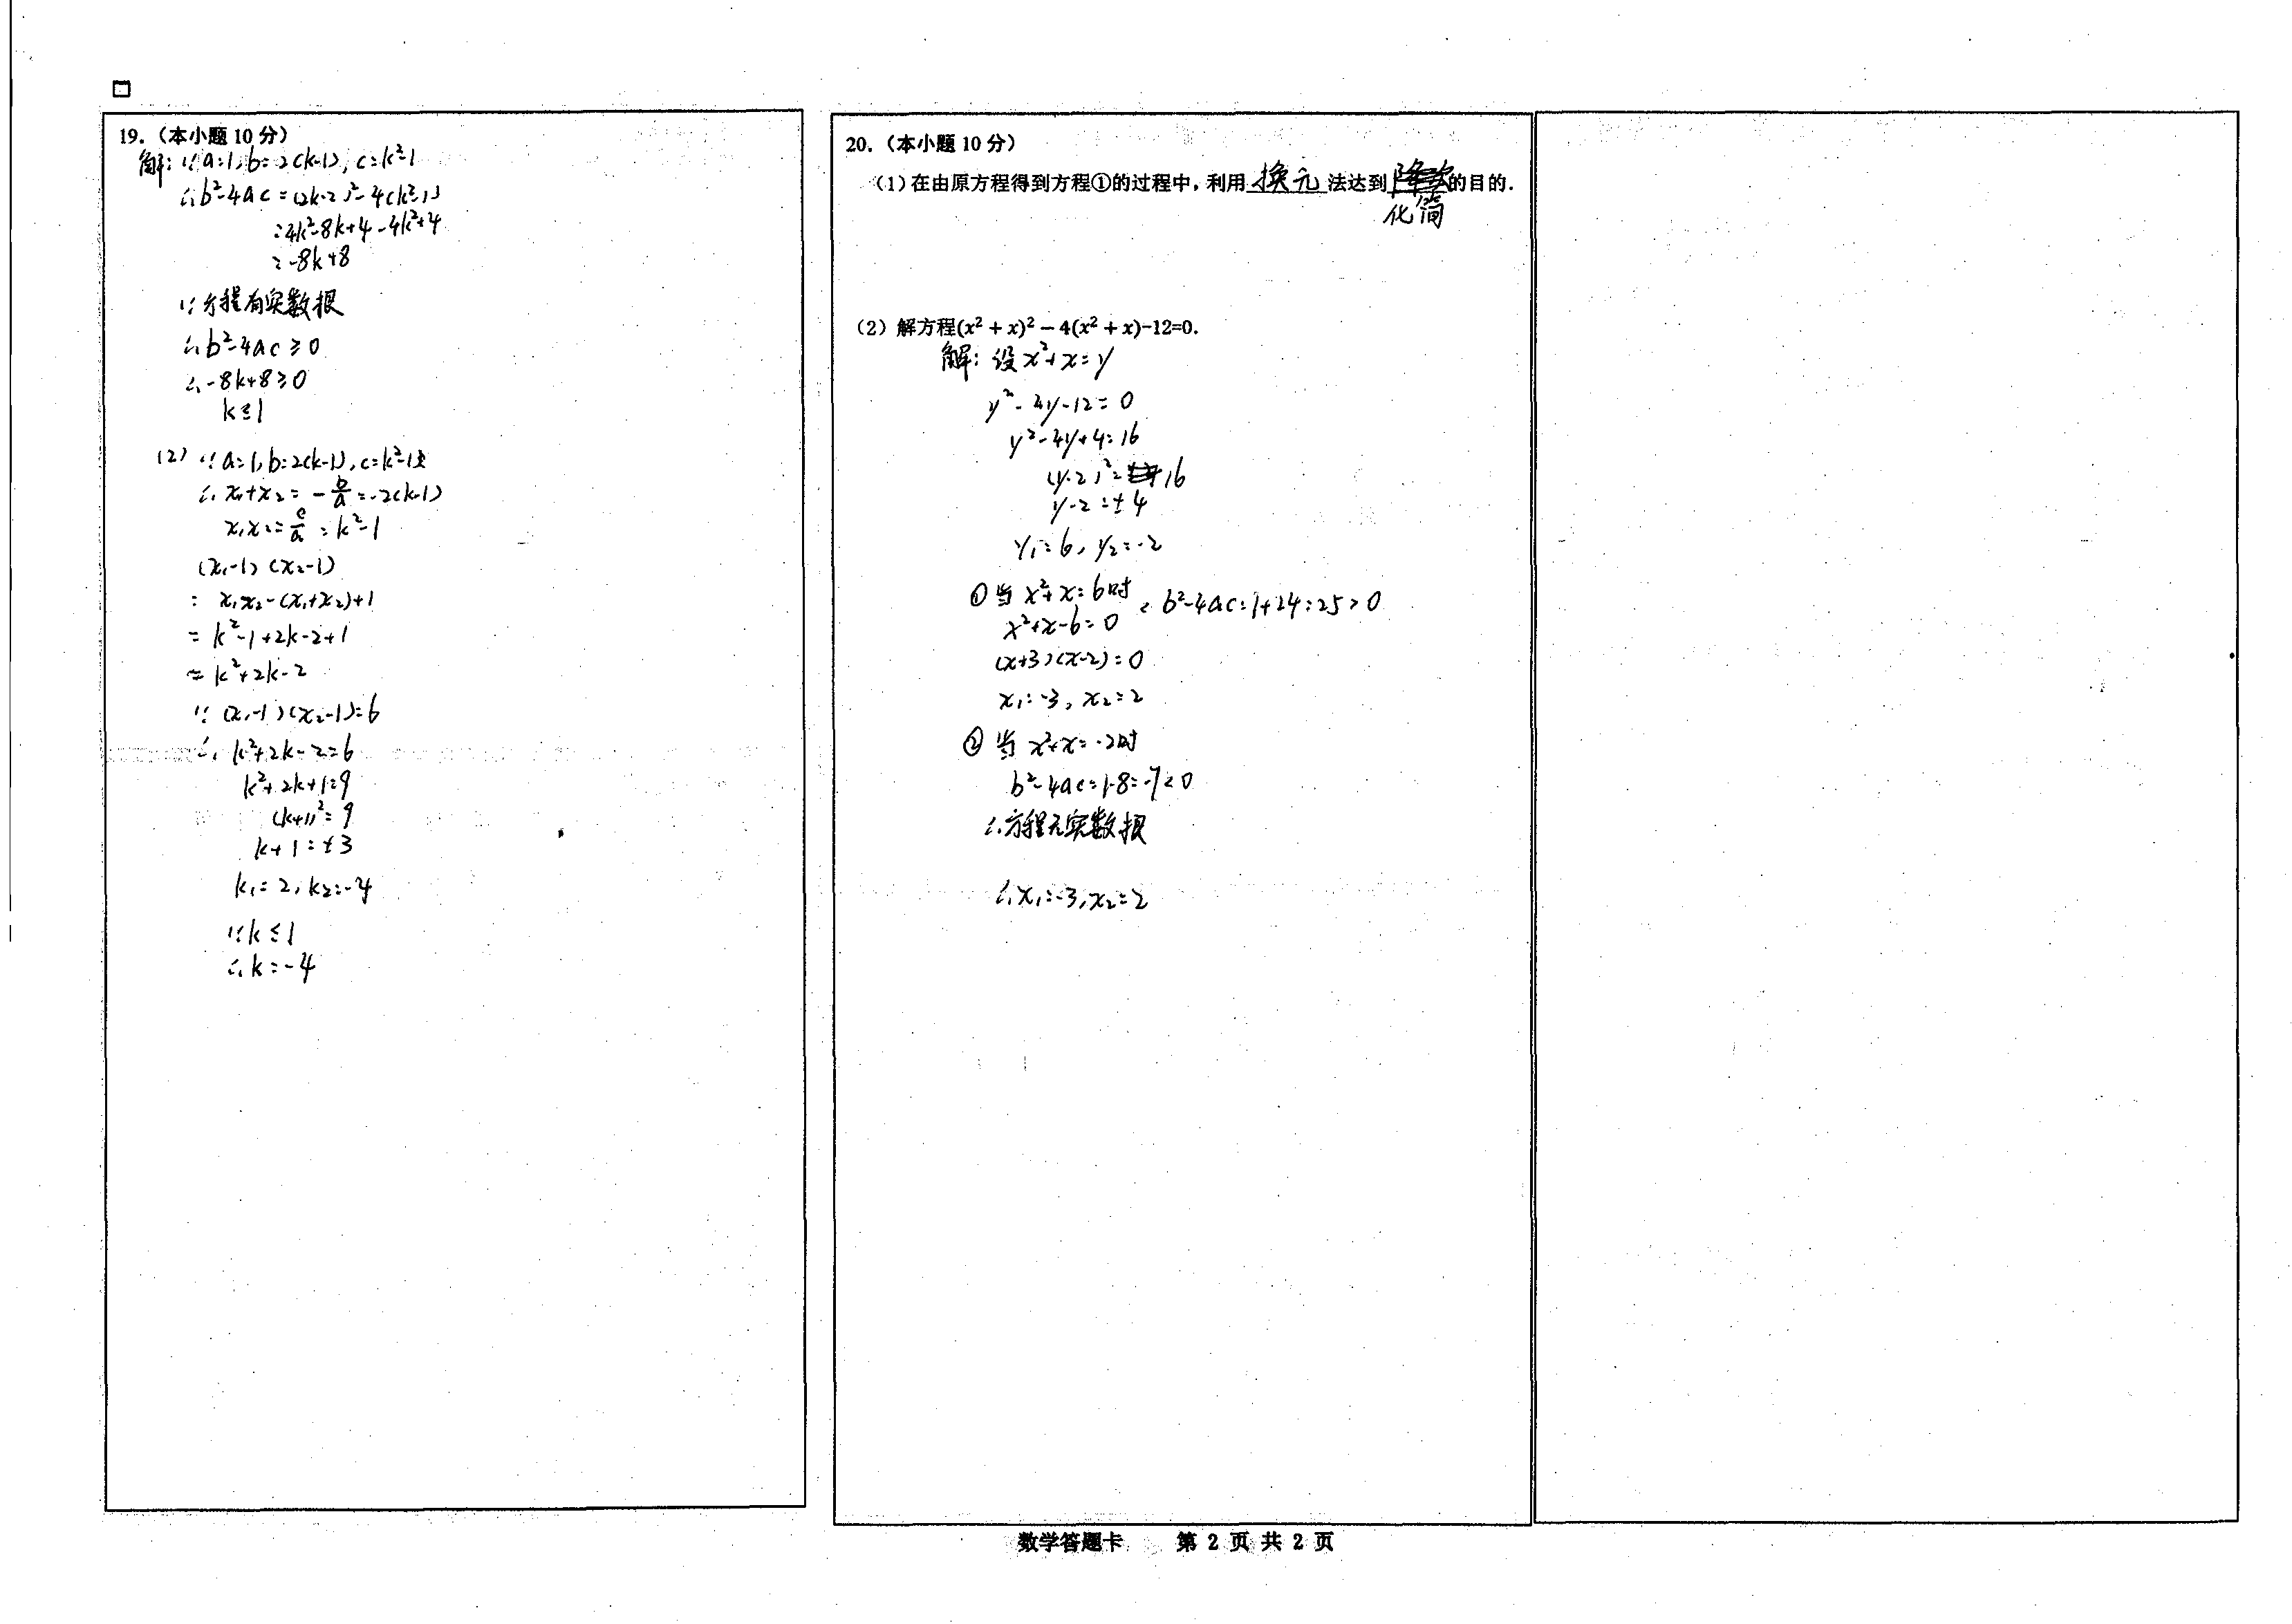 19.（本小题 10 分）
解: ∵a=1,b=2(k-1),c=k²-1
∴b²-4ac=(2k-2)²-4(k²-1)
=4k²-8k+4-4k²+4
=-8k+8
∵方程有实数根
∴b²-4ac≥0
∴-8k+8≥0
k≤1
(2) ∵a=1,b=2(k-1),c=k²-1
∴x₁+x₂=-b/a=-2(k-1)
x₁x₂=c/a=k²-1
(x₁-1)(x₂-1)
=x₁x₂-(x₁+x₂)+1
=k²-1+2k-2+1
=k²+2k-2
∵(x₁-1)(x₂-1)=6
∴k²+2k-2=6
k²+2k+1=9
(k+1)²=9
k+1=±3
k₁=2,k₂=-4
∵k≤1
∴k=-4
20.（本小题 10 分）
（1）在由原方程得到方程①的过程中，利用 换元 法达到 降次 的目的.
化简
（2）解方程(x² + x)² − 4(x² + x)-12=0.
解: 设x²+x=y
y²-4y-12=0
y²-4y+4=16
(y-2)²=16
y-2=±4
y₁=6,y₂=-2
①当x²+x=6时
x²+x-6=0 b²-4ac=1+24=25>0
(x+3)(x-2)=0
x₁=-3,x₂=2
②当x²+x=-2时
b²-4ac=1-8=-7<0
∴方程无实数根
∴x₁=-3,x₂=2
数学答题卡 第 2 页 共 2 页